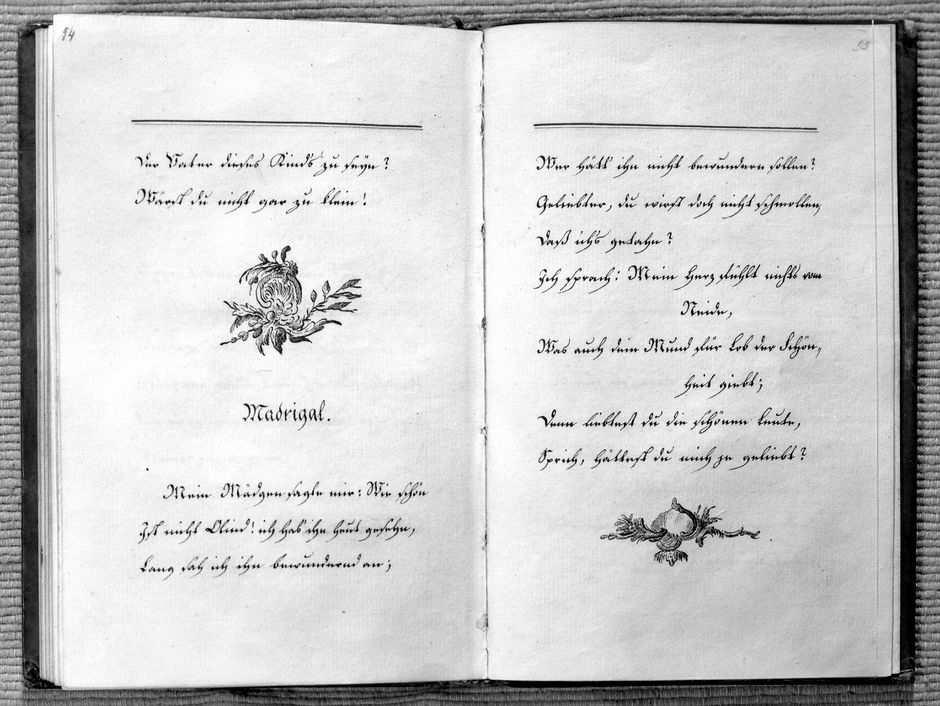 94
Der Vater dieses Kind's zu seyn?
Wärst du nicht gar zu klein!
Madrigal.
Mein Mädgen sagte mir: Wie schön
Ist nicht Olind! ich hab' ihn heut gesehn,
Lang sah ich ihn bewundernd an;
95
Wer hätt' ihn nicht bewundern sollen?
Geliebter, du wirst doch nicht schmollen,
Daß ich's gethan?
Ich sprach: Mein Herz fühlt nichts von
Neide,
Was auch dein Mund für Lob der Schön,
heit giebt;
Denn liebtest du die schönen Leute,
Sprich, hättest du mich je geliebt?